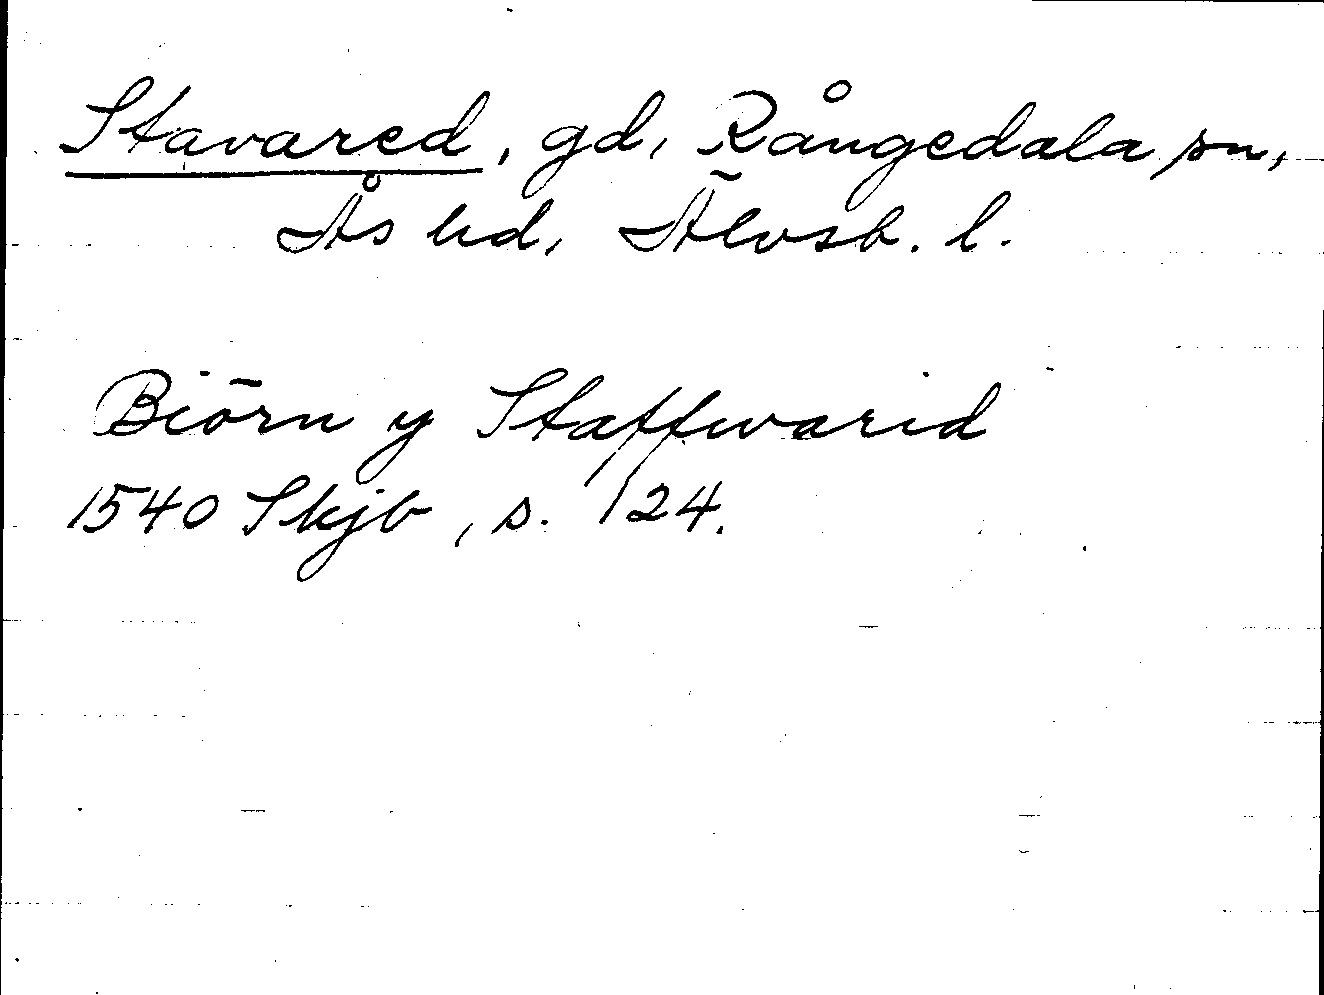 Stavared, gd, Rångedala sn,
Ås hd, Älvsb. l.
Biörn y Staffwarid
1540 Skjb, s. 124.